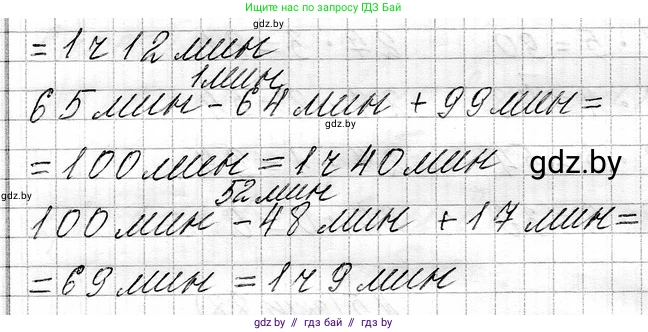 Ищите нас по запросу ГДЗ Бай
gdz.by
= 1 ч 12 мин
1 мин
65 мин - 64 мин + 99 мин =
gdz.by
= 100 мин = 1 ч 40 мин
gdz.by
gdz.by
52 мин
100 мин - 48 мин + 17 мин =
= 69 мин = 1 ч 9 мин
gdz.by // гдз бай // gdz.by